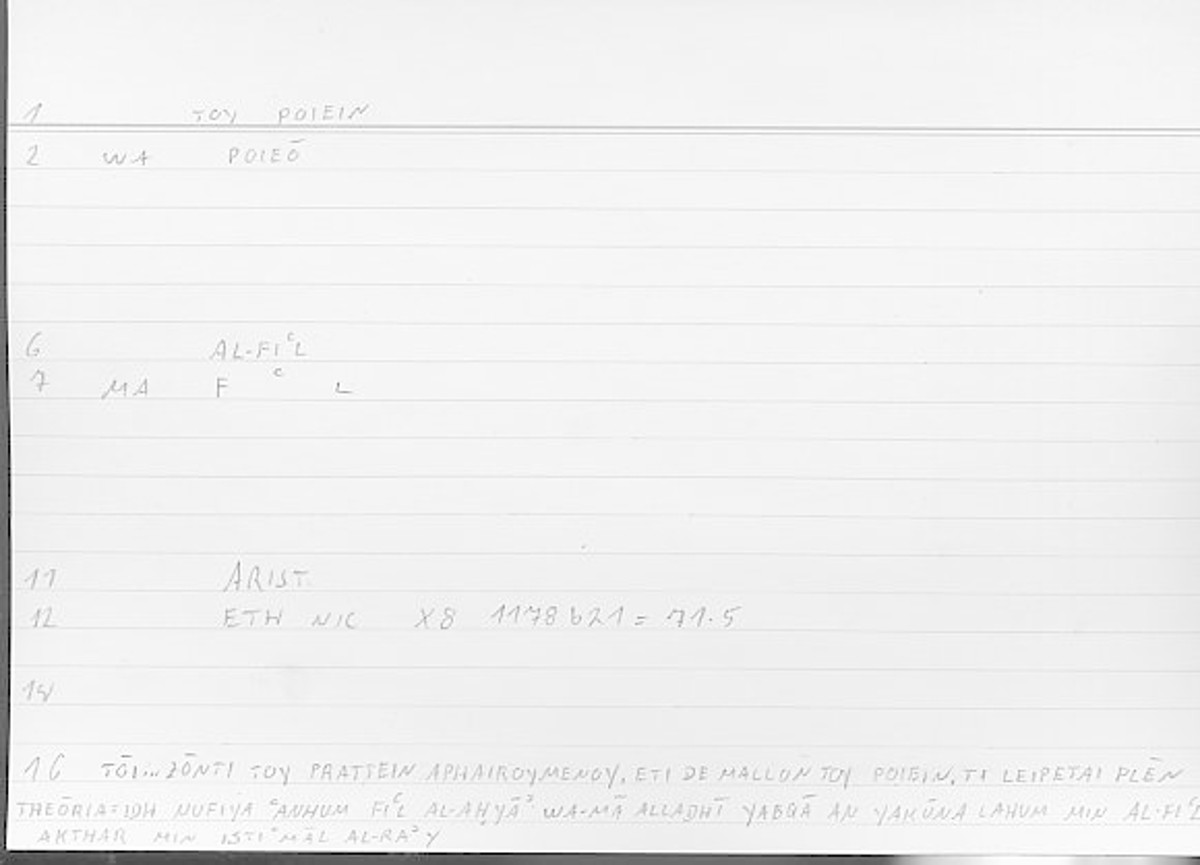 1 TOY POIEIN
2 WA POIEŌ
6 AL-FIᶜL
7 MA F ᶜ L
11 ARIST.
12 ETH NIC X8 1178b21 = 71.5
14
16 TŌI... ZŌNTI TOY PRATTEIN APHAIROYMENOY, ETI DE MALLON TOY POIEIN, TI LEIPETAI PLĒN
THEŌRIA = IDH NUFIYA ᶜANHUM FIᶜL AL-AḤYĀʾ WA-MĀ ALLADHĪ YABQĀ AN YAKŪNA LAHUM MIN AL-FIᶜL
AKTHAR MIN ISTIᶜMĀL AL-RAʾY